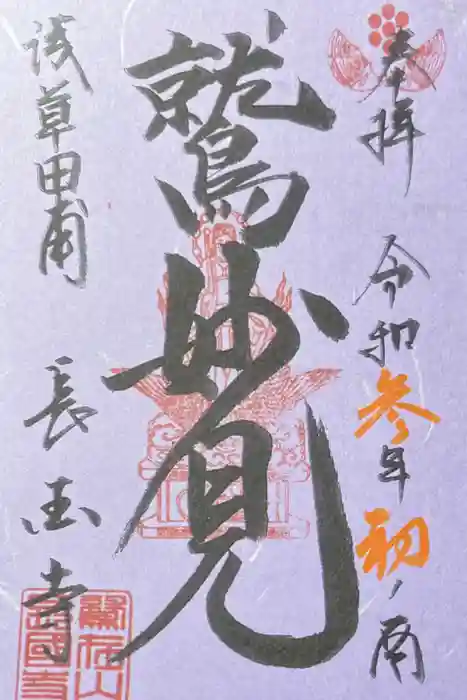 奉拝　令和参年初ノ酉
鷲妙見
浅草田甫　長国寺
鷲在山
長國寺